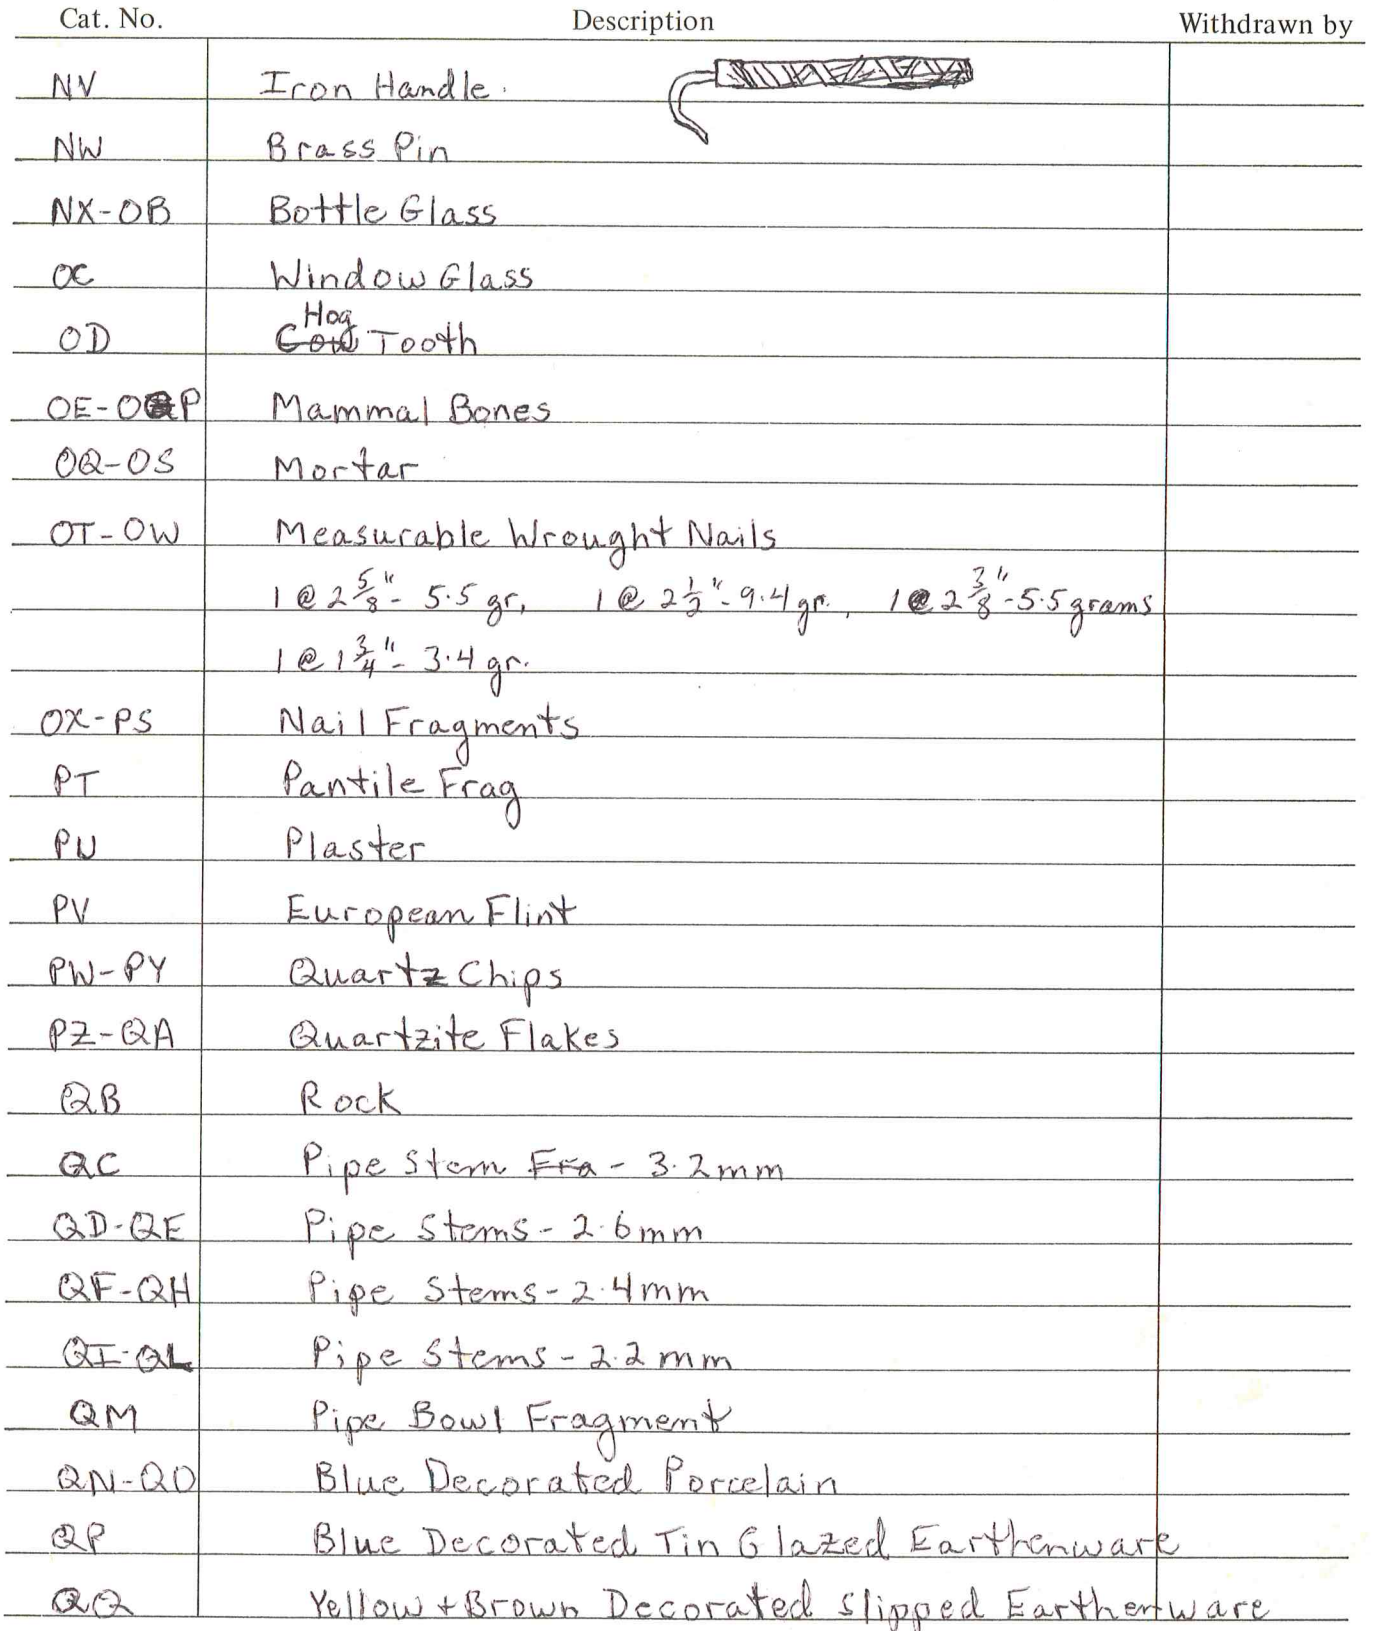 Cat. No. Description Withdrawn by
NV Iron Handle.
NW Brass Pin
NX-OB Bottle Glass
OC Window Glass
Hog
OD Cow Tooth
OE-OP Mammal Bones
OQ-OS Mortar
OT-OW Measurable Wrought Nails
1 @ 2 5/8" - 5.5 gr, 1 @ 2 1/2" - 9.4 gr. , 1 @ 2 3/8" - 5.5 grams
1 @ 1 3/4" - 3.4 gr.
OX-PS Nail Fragments
PT Pantile Frag
PU Plaster
PV European Flint
PW-PY Quartz Chips
PZ-QA Quartzite Flakes
QB Rock
QC Pipe Stem Fra - 3.2mm
QD-QE Pipe Stems - 2.6mm
QF-QH Pipe Stems - 2.4mm
QI-QL Pipe Stems - 2.2mm
QM Pipe Bowl Fragment
QN-QO Blue Decorated Porcelain
QP Blue Decorated Tin Glazed Earthenware
QQ Yellow + Brown Decorated Slipped Earthenware